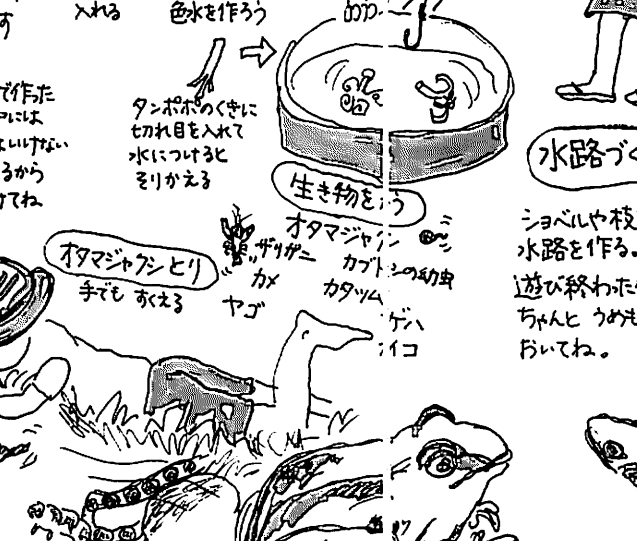 す
入れる
色水を作ろう
で作った
中には
いけない
るから
けてね
タンポポのくきに
切れ目を入れて
水につけると
そりかえる
生き物をう
オタマジャクシとり
手でも すくえる
ザリガニ
カメ
ヤゴ
オタマジャ
カブト
シの幼虫
カタツム
ゲハ
イコ
水路づく
ショベルや枝
水路を作る。
遊び終わった
ちゃんと うめも
おいてね。